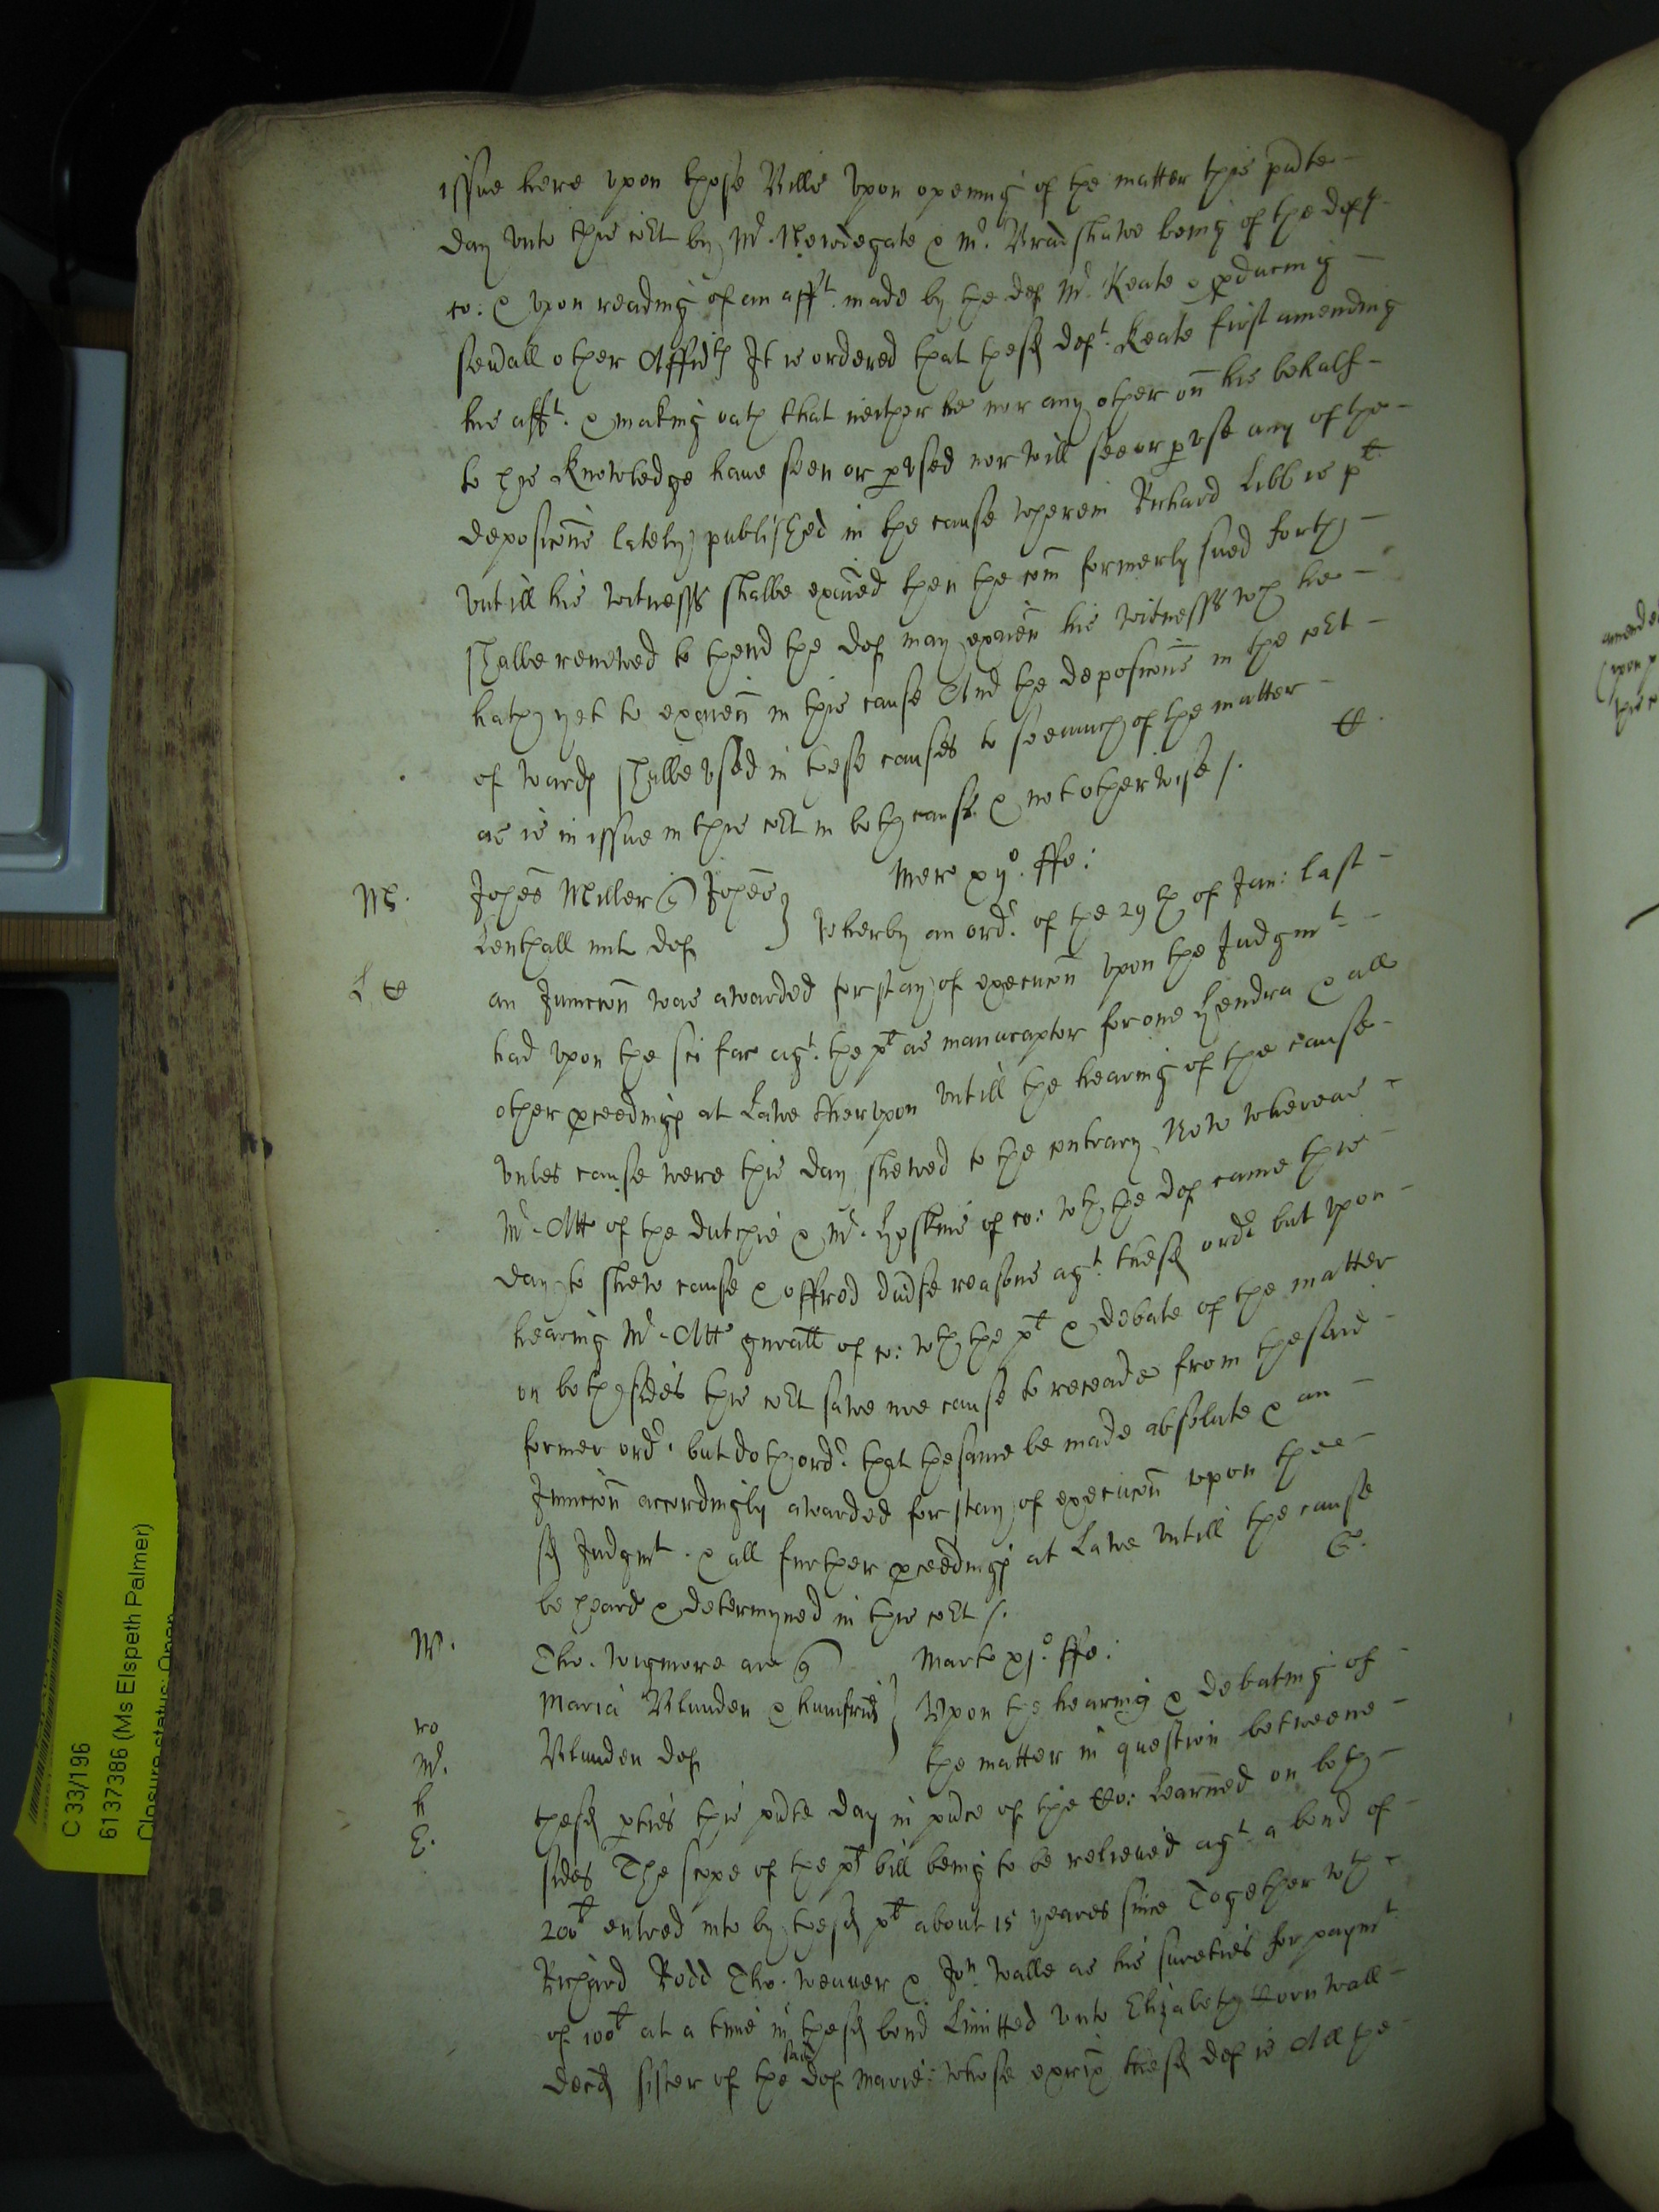 issue here upon those Bills Upon openinge of the matter this pńte
day unto this coĹt by Mr. Newdegate & mr. Bradshawe being of the defts
co: & upon reading of an afft. made by the def Mr. Keate & pducing
seuĹall other Affidts It is ordered that thesd deft. Keate first amending
his afft. & making oath that neither he nor any other on his behalf
to his knowledge haue seen or pused nor will see or puse any of the
deposicons lately published in the cause wherein Richard Libb is plt
untill his witnesss shalbe exaied then the com formerly sued forth
shalbe renewed to thend the def may exaien his witnesss wch he
hath yet to exaien in this cause And the deposicons in the coĹt
of wards shalbe used in these causes to soe much of the matter
as is in issue in this coĹt in both cause & not otherwise /.
Johes Miller Johes
Lenthall mil def
Merc xijo. ffe:
Wherby an ordr. of the 29th of Jan: last
an Iniuncion was awarded for stay of execucon upon the Judgmt
had upon the sci fac agt. the plt as manucaptor for one Hendra & all
other pceedings at Lawe therupon untill the hearing of the cause
unles cause were this day shewed to the contrary Now whereas
Mr. Att of the dutchie & Mr. of co: wth the def came this
day to shew cause & offred diuse reasons agt. thesd ordr but upon
hearing Mr. Att gnrall of co: wth the plt & debate of the matter
on both sides this coĹt sawe noe cause to receade from thesaid
former ordr. but doth ordr. that thesame be made absolute & an
Iniuncion accordingly awarded for stay of execucon upon thee
sd Judgmt. & all further pceedings at Lawe untill the cause
be heard & determyned in this coĹt /.
Tho. Wigmore ar
Maria Blunden & humfrid
Blunden def
Marte xjo. ffe:
Upon the hearing & debating of
the matter in question betweene
thesd pties this pńte day in pńce of the Co: Learned on both
sides The scope of the plt bill being to be relieued agt a bond of
200l entred into by thesd plt about 15 yeares since Together wth
Richard Rodd Tho. Weauer & Jon. Walle as his sureties for paymt
of 100l at a time in thesd bond Limitted unto Elizabeth Cornwall
decd sister of the said def Marie: whose exrix thesd def is All the
C 33/196
6137386 (Ms Elspeth Palmer)
Closure status: Open